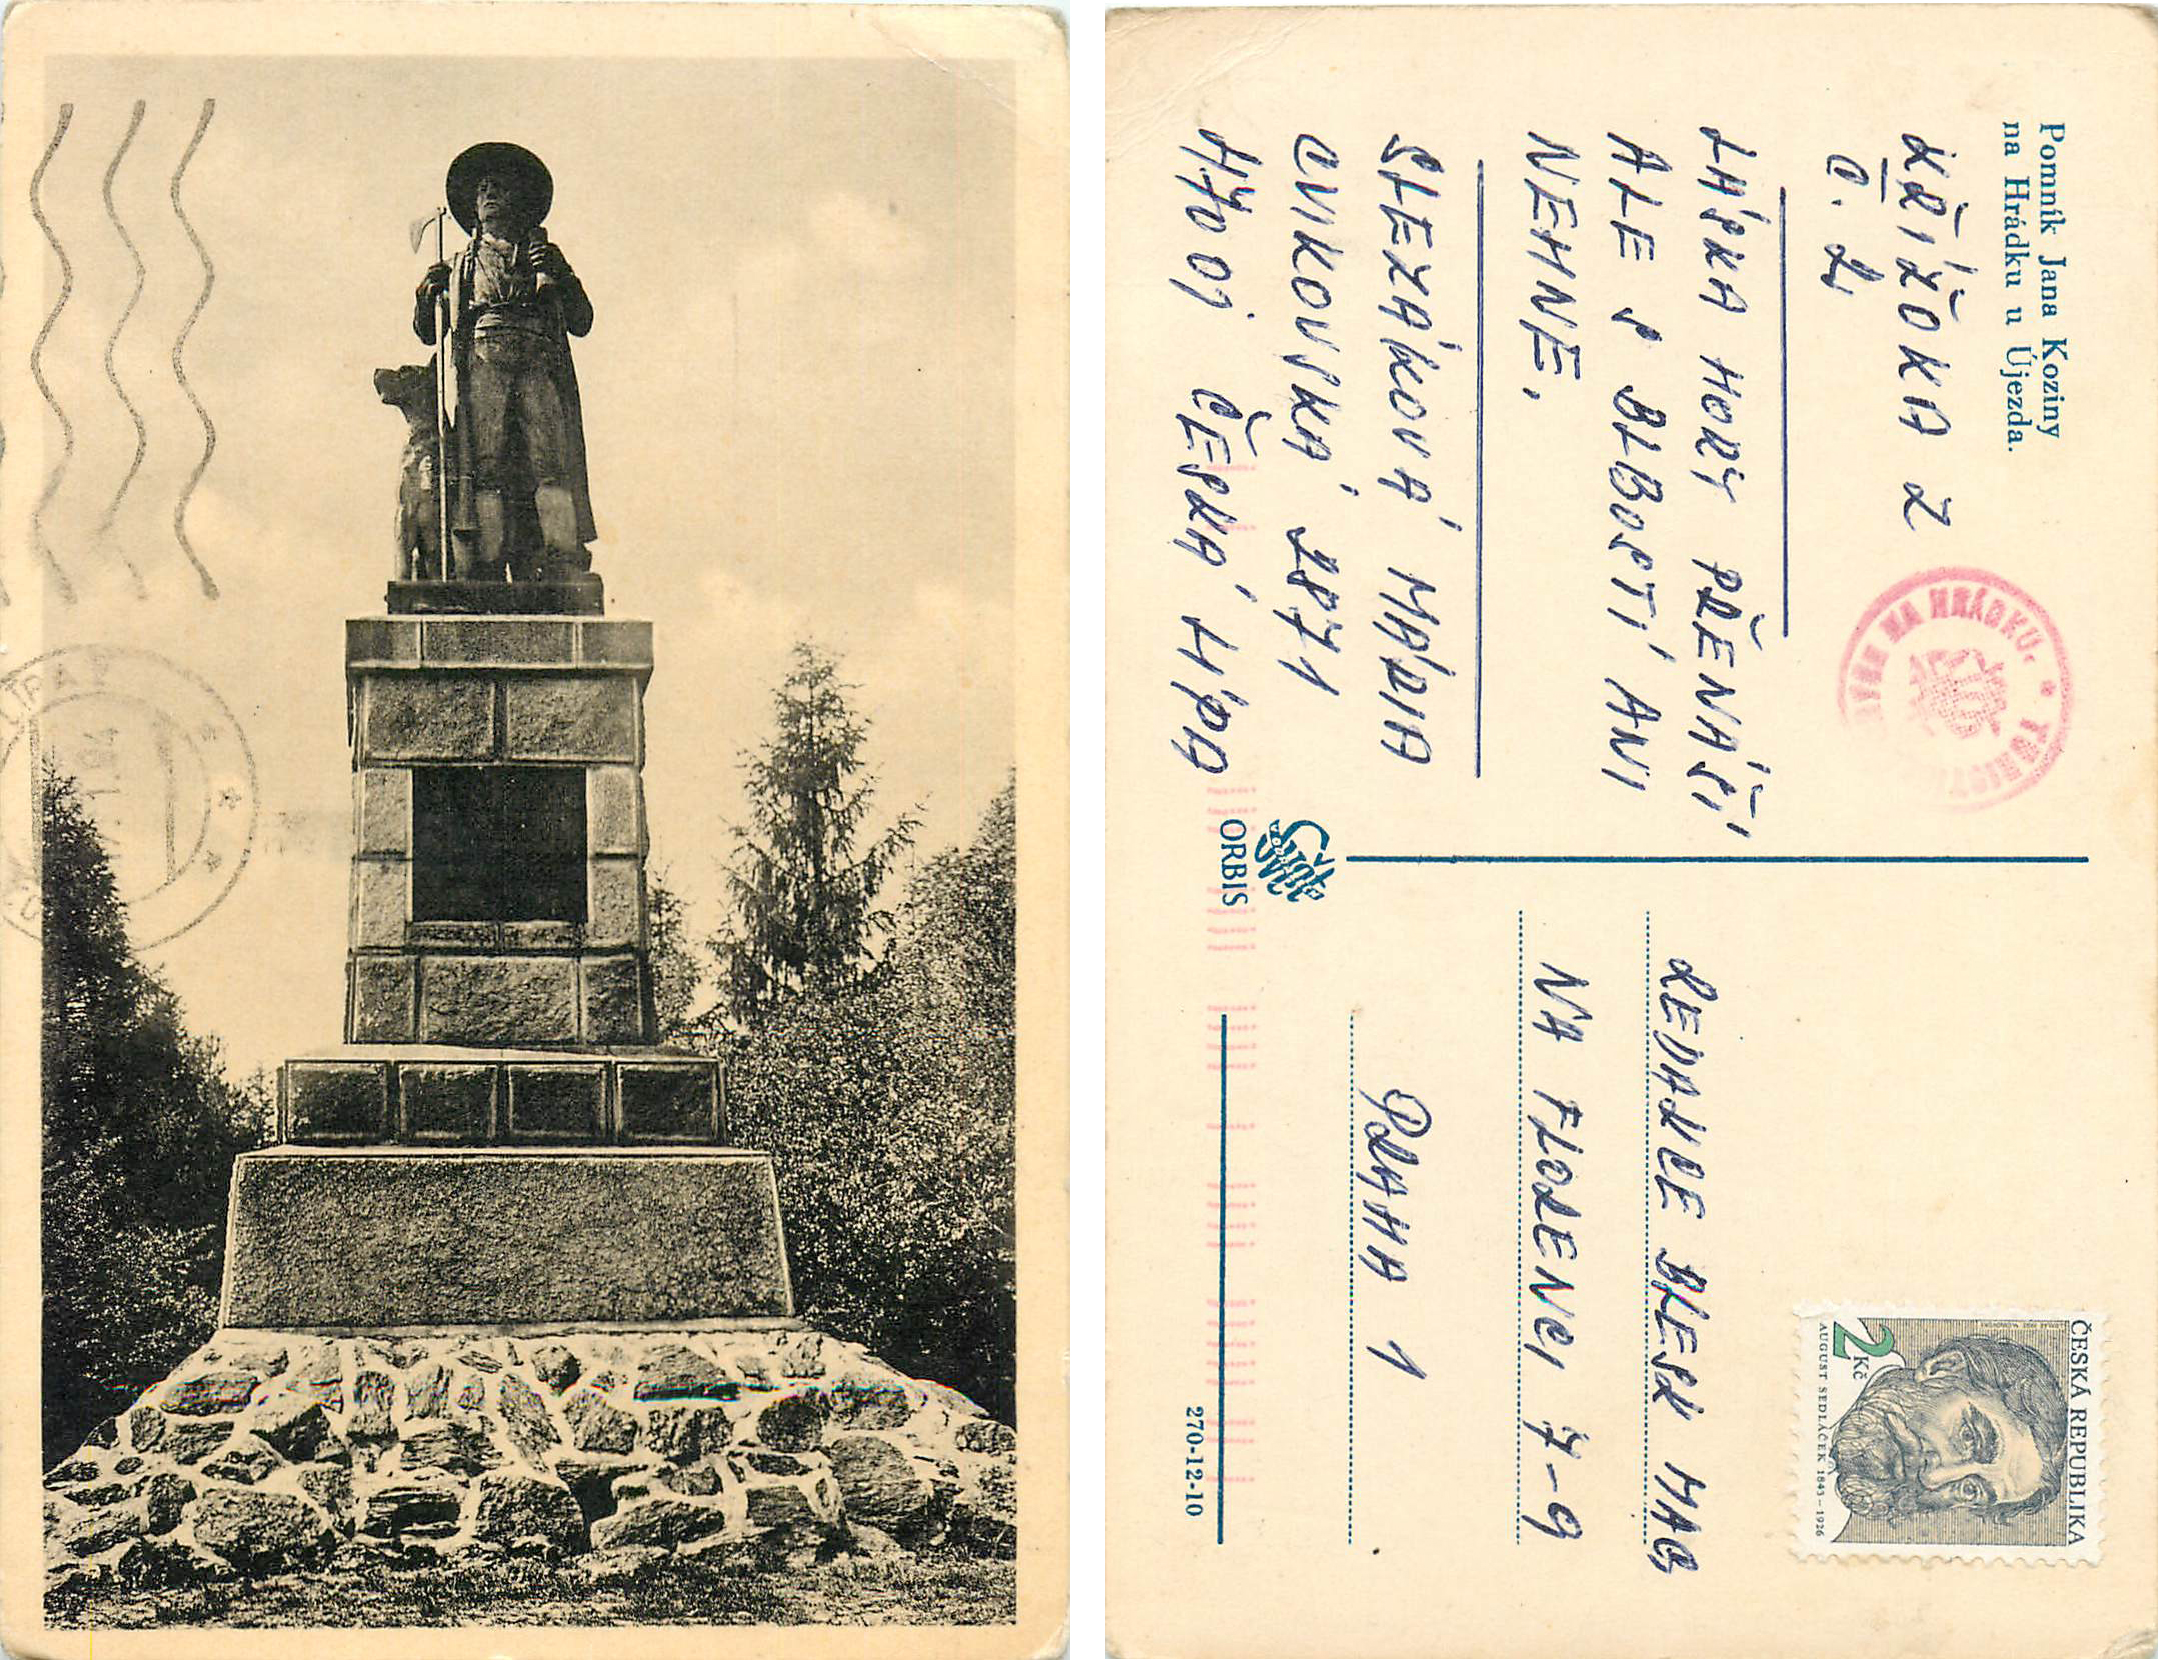 Pomník Jana Koziny
na Hrádku u Újezda.
KŘÍŽOKA Z
Č. 2.
LÁSKA HORY PŘENÁŠÍ
ALE S BLBOSTÍ ANI
NEHNE.
SLEZÁKOVÁ MÁRIA
CVIKOVSKÁ 2871
47001 ČESKÁ LÍPA
NA HRÁDKU
ORBIS
REDAKCE BLESK MAG
NA FLORENCI 7-9
PRAHA 1
ČESKÁ REPUBLIKA
2 Kč
AUGUST SEDLÁČEK 1843-1926
270-12-10